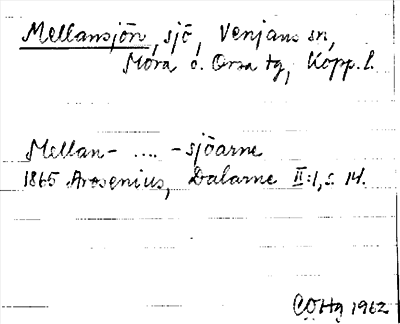 Mellansjön, sjö, Venjans sn,
Mora o. Orsa tg, Kopp. l.
Mellan- .... -sjöarne
1865 Arosenius, Dalarne II:1, s. 14.
COHg 1962